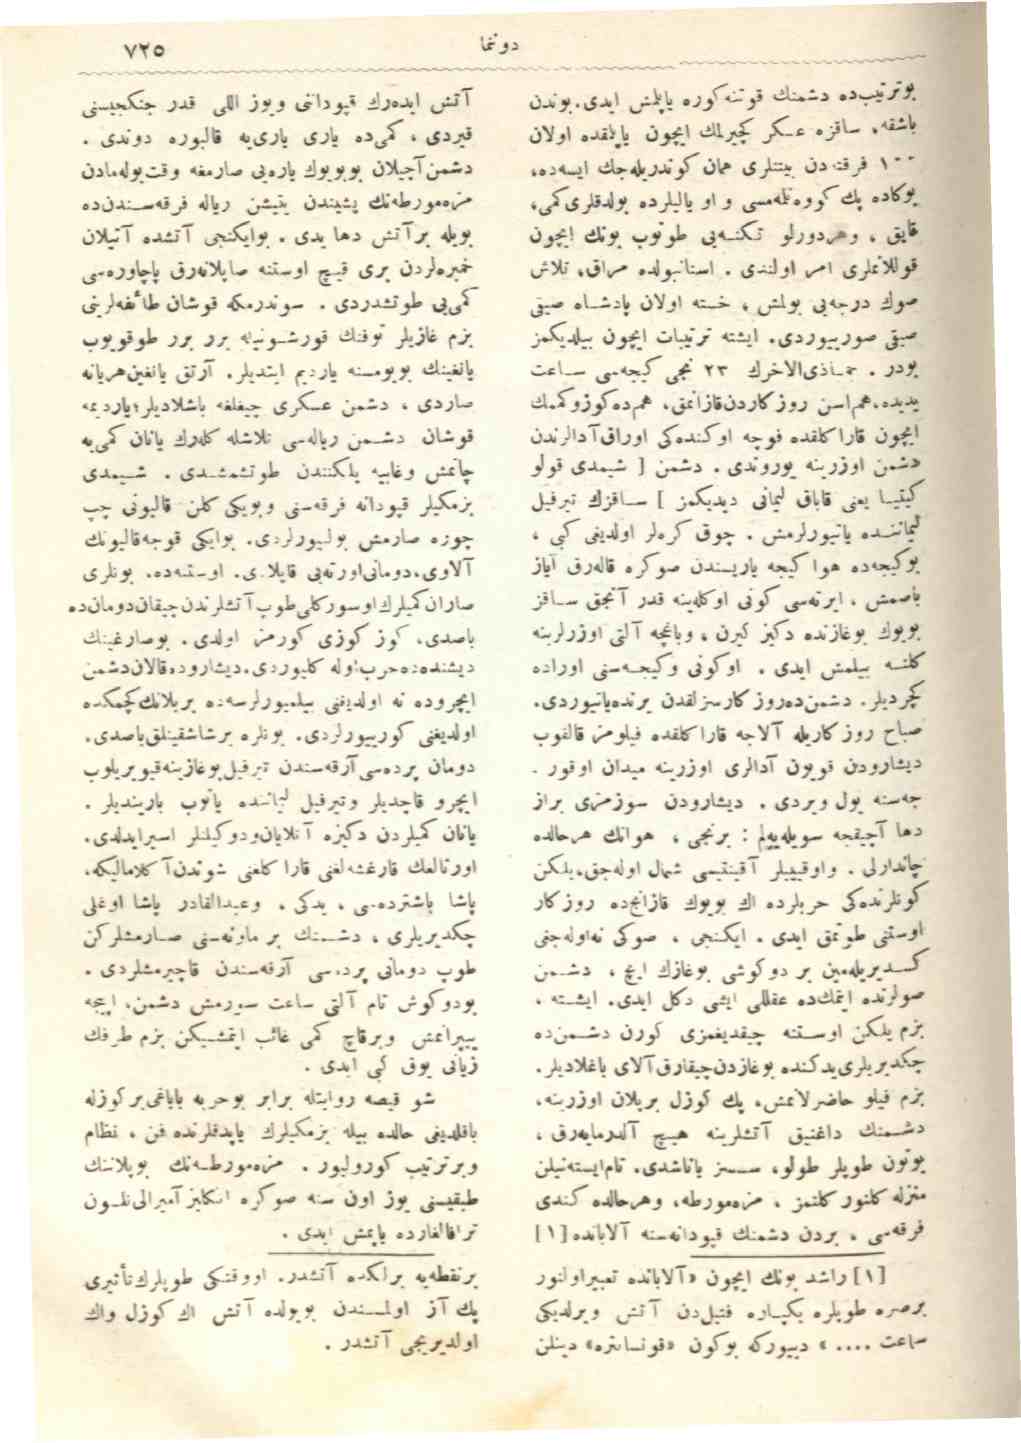 دوننما
٧٢٥
بوترتیب‌ده دشمنك قوتنه‌كوره یاپلمش ایدی. بوندن
باشقه، ساقزه عسكر كچیرلمك ایچون یاپلقده اولان
١٠٠ فرقته‌دن بیتنلری همان كوندریله‌جك ایسه‌ده،
بوكاده پك كووه‌نلەمسی و او یالیلرده بولدقلری كمی،
قایق ، وهردورلو تكنه‌یی طوتوب بونك ایچون
قوللانملری امر اولندی . استانبولده مراق، تلاش
صوك درجه‌یی بولمش ، خسته اولان پادشاه صیقی
صیقی صوریوردی. ایشته ترتیبات ایچون بیلدیكمز
بودر . جماذی‌الاخرك ٢٣ نجی كیجه‌سی ساعت
یدیده، هم‌اسن روزكاردن‌قازانمق، هم‌ده‌كوزوكمه‌مك
ایچون قارا كلقده فوچه اوكنده‌كی اوراق‌آدالرندن
دشمن اوزرینه یوروندی . دشمن [ شیمدی قولو
كیتیا یعنی قاباق لیمانی دیدیكمز ] ساقزك تیرفیل
لیماننده یاتیورلرمش . چوق كره‌لر اولدیغی كبی ،
بوكیجه‌ده هوا كیجه یاریسندن صوكره قاله‌رق آیاز
باصمش ، ایرته‌سی كونی اوكله‌ینه قدر آنجق ساقز
بویوك بوغازنده دكیز كیرن ، وباغچه آلتی اوزرلرینه
كلنه بیلمش ایدی . اوكونی وكیجه‌سنی اوراده
كچردیلر. دشمن‌ده‌روز كارسزلقدن یرنده‌یاتیوردی.
صباح روز كاریله آلاجه قارا كلقده فیلومز قالقوب
دیشارودن قویون آدالری اوزرینه میدان اوقور .
جه‌سنه یول ویردی . دیشارودن سوزمزی براز
دها آچیقجه سویله‌یه‌لم : برنجی ، هوانك هرحالده
چاندارلی . واوقییپلر آقینتیسی شمال اوله‌جق، یلكن
كونلرنده‌كی حربلرده اك بویوك قازانج‌ده روزكار
اوستنی طوتمق ایدی . ایكنجی ، صوكی نه‌اوله‌جغی
كسدیریله‌مین بر دوكوشی بوغازك ایچ ، دشمن
صولرنده ایتمك‌ده عقللی ایشی دكل ایدی. ایشته ،
بزم یلكن اوستنه چیقدیغمزی كورن دشمن‌ده
چكدیریلری یدكنده بوغازدن‌چیقارق‌آلای باغلادیلر.
بزم فیلو حاضرلانمش، پك كوزل بریلان اوزرینه،
دشمنك داغنیق آتشلرینه هیچ آلدرمایه‌رق ،
بوتون طوپلر طولو، سسز یاناشدی. تام‌ایسته‌نیلن
منزله كلنور كلنمز ، مزه‌مورطه، وهرحالده كندی
فرقه‌سی ، بردن دشمنك قپودانه‌سنه آلابانده[١]
[١] راشد بونك ایچون «آلابانده تعبیراولنور
برصره طوپلره یكپاره فتیل‌دن آتش ویرلدیكی
ساعت .... » دییوركه بوكون «قونسانتره» دینلن
آتش ایده‌رك قپودانی ویوز اللی قدر جنكجیسنی
قیردی ، كمی‌ده یاری یاری‌یه قالبوره دوندی .
دشمن‌آچیلان بوبویوك یاره‌یی صارمغه وقت‌بوله‌مادن
مزه‌مورطه‌نك پشیندن یتیشن ریاله فرقه‌سندن‌ده
بویله برآتش دها یدی . بوایكنجی آتشده آتیلان
خمبره‌لردن بری قیچ اوستنه صاپلانه‌رق پاچاوره‌سی
كمی‌یی طوتشدردی . سوندرمكه قوشان طائفه‌لرینی
بزم غازیلر توفنك قورشونیله برر برر طوقویوب
یانغینك بویومسنه یاردیم ایتدیلر. آرتق یانغین‌هریانه
صاردی ، دشمن عسكری چیغلغه باشلادیلر؛یاردیمه
قوشان دشمن ریاله‌سی تلاشله كله‌رك یانان كمی‌یه
چاتمش وغابیه یلكنندن طوتشمشدی . شیمدی
بزمكیلر قپودانه فرقه‌سنی وبویكی كلن قالیونی چپ
چوره صارمش بولیورلردی. بوایكی قوجه‌قالیونك
آلاوی، دومانی‌اورته‌یی قاپلادی. اوستنه‌ده، بونلری
صاران‌كمیلرك‌اوسوركلی‌طوپ آتشلرندن‌چیقان‌دومان‌ده
باصدی، كوز كوزی كورمز اولدی. بوصارغینك
دیشنده‌ده‌حرب‌اوله كلیوردی. دیشاروده‌قالان‌دشمن
ایچروده نه اولدیغنی بیلمیورلرسه‌ده بریلانك‌كچمكده
اولدیغنی كوریورلردی. بونلره برشاشقینلق‌باصدی.
دومان پرده‌سی‌آرقه‌سندن تیرفیل‌بوغازینه‌قیویریلوب
ایچرو قاچدیلر وتیرفیل لیماننده یاتوب باریندیلر .
یانان كمیلردن دكیزه آتلایان‌ودوكیلنلر اسیرایدلدی.
اورتالغك قارغشه‌لغی قارا كلغی شوندن‌آكلامالیكه،
پاشا باشترده‌سی ، یدكی . وعبدالقادر پاشا اوغلی
چكدیریلری ، دشمنك بر ماونه‌سنی صارمشلركن
طوپ دومانی پرده‌سی آرقه‌سندن قاچیرمشلردی .
بودوكوش تام آلتی ساعت سورمش دشمن، ایپجه
ییپرانمش وبرقاچ كمی غائب ایتمشیكن بزم طرفك
زیانی یوق كبی ایدی .
شو قیصه روایتله برابر بوحربه باباغی‌بركوزله
باقلدیغی حالده بیله بزمكیلرك یاپدقلرنده فن ، نظام
وبرترتیب كورولیور . مزه‌مورطه‌نك بویلانك
طبقیسنی یوز اون سنه صوكره انكلیز آمیرالی‌نلسون
ترافالغارده یاپمش ایدی .
برنقطه‌یه برلكده آتشدر. اووقتكی طوپلرك‌تأثیری
پك آز اولمسندن بویولده آتش اك كوزل واك
اولدیریجی آتشدر .